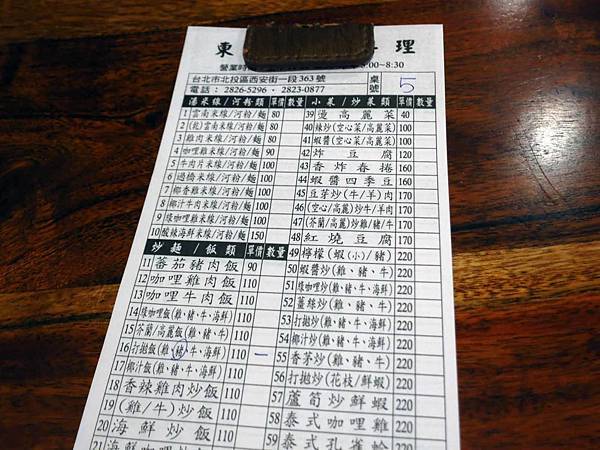 東 理
營業時 :00~8:30
台北市北投區西安街一段363號
電話: 2826-5296 · 2823-0877
桌號 5
湯米線/河粉類 單價 數量
1 雲南米線/河粉/麵 80
2 (乾)雲南米線/河粉/麵 80
3 雞肉米線/河粉/麵 80
4 咖哩米線/河粉/麵 90
5 牛肉片米線/河粉/麵 100
6 過橋米線/河粉/麵 100
7 椰香雞米線/河粉/麵 100
8 椰汁牛肉米線/河粉/麵 100
9 綠咖哩雞米線/河粉/麵 100
10 酸辣海鮮米線/河粉/麵 150
炒麵/飯類 單價 數量
11 蕃茄豬肉飯 90
12 咖哩雞肉飯 110
13 咖哩牛肉飯 110
14 綠咖哩飯(雞、豬、牛、海鮮) 110
15 芥蘭/高麗飯(雞、豬、牛) 110
16 打拋飯(雞、豬、牛、海鮮) 110 一
17 椰汁飯(雞、豬、牛、海鮮) 110
18 香辣雞肉炒飯 110
19 (雞/牛)炒飯 110
20 海鮮炒飯 110
21 海鮮咖哩飯
小菜/炒菜類 單價 數量
39 燙高麗菜 40
40 辣炒(空心菜/高麗菜) 100
41 蝦醬(空心菜/高麗菜) 100
42 炸豆腐 120
43 香炸春捲 160
44 蝦醬四季豆 160
45 豆芽炒(牛/羊)肉 170
46 (空心/高麗)炒牛/羊肉 170
47 (芥蘭/高麗)炒雞/豬/牛 170
48 紅燒豆腐 170
49 檸檬(蝦(小)/豬) 220
50 蝦醬炒(雞、豬、牛) 220
51 綠咖哩炒(雞、豬、牛、海鮮) 220
52 薑絲炒(雞、豬、牛) 220
53 打拋炒(雞、豬、牛、海鮮) 220
54 椰汁炒(雞、豬、牛、海鮮) 220
55 香茅炒(雞、豬、牛) 220
56 打拋炒(花枝/鮮蝦) 220
57 蘆筍炒鮮蝦 220
58 泰式咖哩雞 220
59 泰式孔雀蛤 220